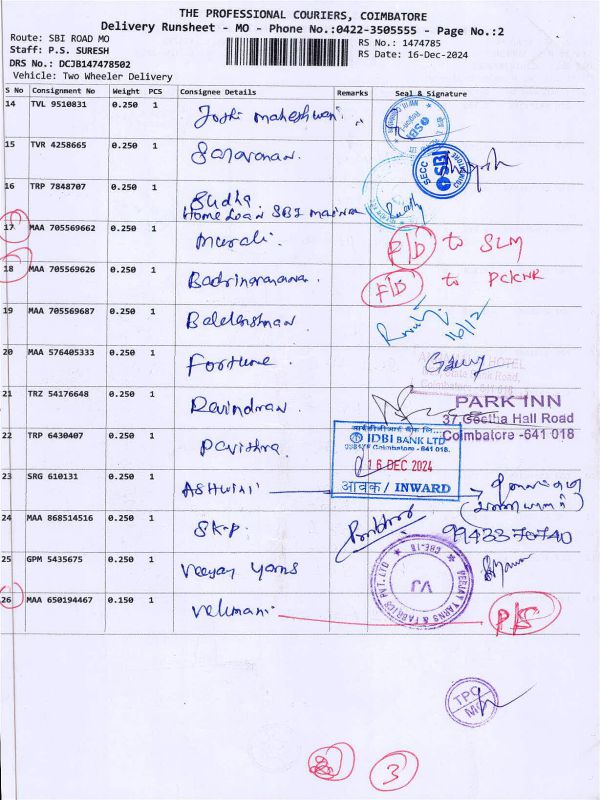 THE PROFESSIONAL COURIERS, COIMBATORE
Delivery Runsheet - MO - Phone No.:0422-3505555 - Page No.:2
Route: SBI ROAD MO
RS No.: 1474785
Staff: P.S. SURESH
RS Date: 16-Dec-2024
DRS No.: DCJB147478502
Vehicle: Two Wheeler Delivery
S No Consignment No Weight PCS Consignee Details Remarks Seal & Signature
14 TVL 9510831 0.250 1 Joshi maheshwari
15 TVR 4258665 0.250 1 Saravanan.
SECC
16 TRP 7848707 0.250 1 Sudha
Home Loan SBI main
17 MAA 705569662 0.250 1 Murali. F/D to SLM
18 MAA 705569626 0.250 1 F/D to
19 MAA 705569687 0.250 1
16/12
20 MAA 576405333 0.250 1 Fortune.
HOTEL
Coimbatore - 641 018.
21 TRZ 54176648 0.250 1 Ravindran
PARK INN
37,Geetha Hall Road
Coimbatore -641 018
22 TRP 6430407 0.250 1 Pavithra
IDBI BANK LTD
Coimbatore - 641 018.
16 DEC 2024
आवक / INWARD
23 SRG 610131 0.250 1 ASHWINI
24 MAA 868514516 0.250 1 SKP 9943370740
25 GPM 5435675 0.250 1 Veejay Yarns
VEEJAY YARNS & FABRICS PVT. LTD
CBE-18
VJ
26 MAA 650194467 0.150 1 Velumani P/S
TPC
MO
3